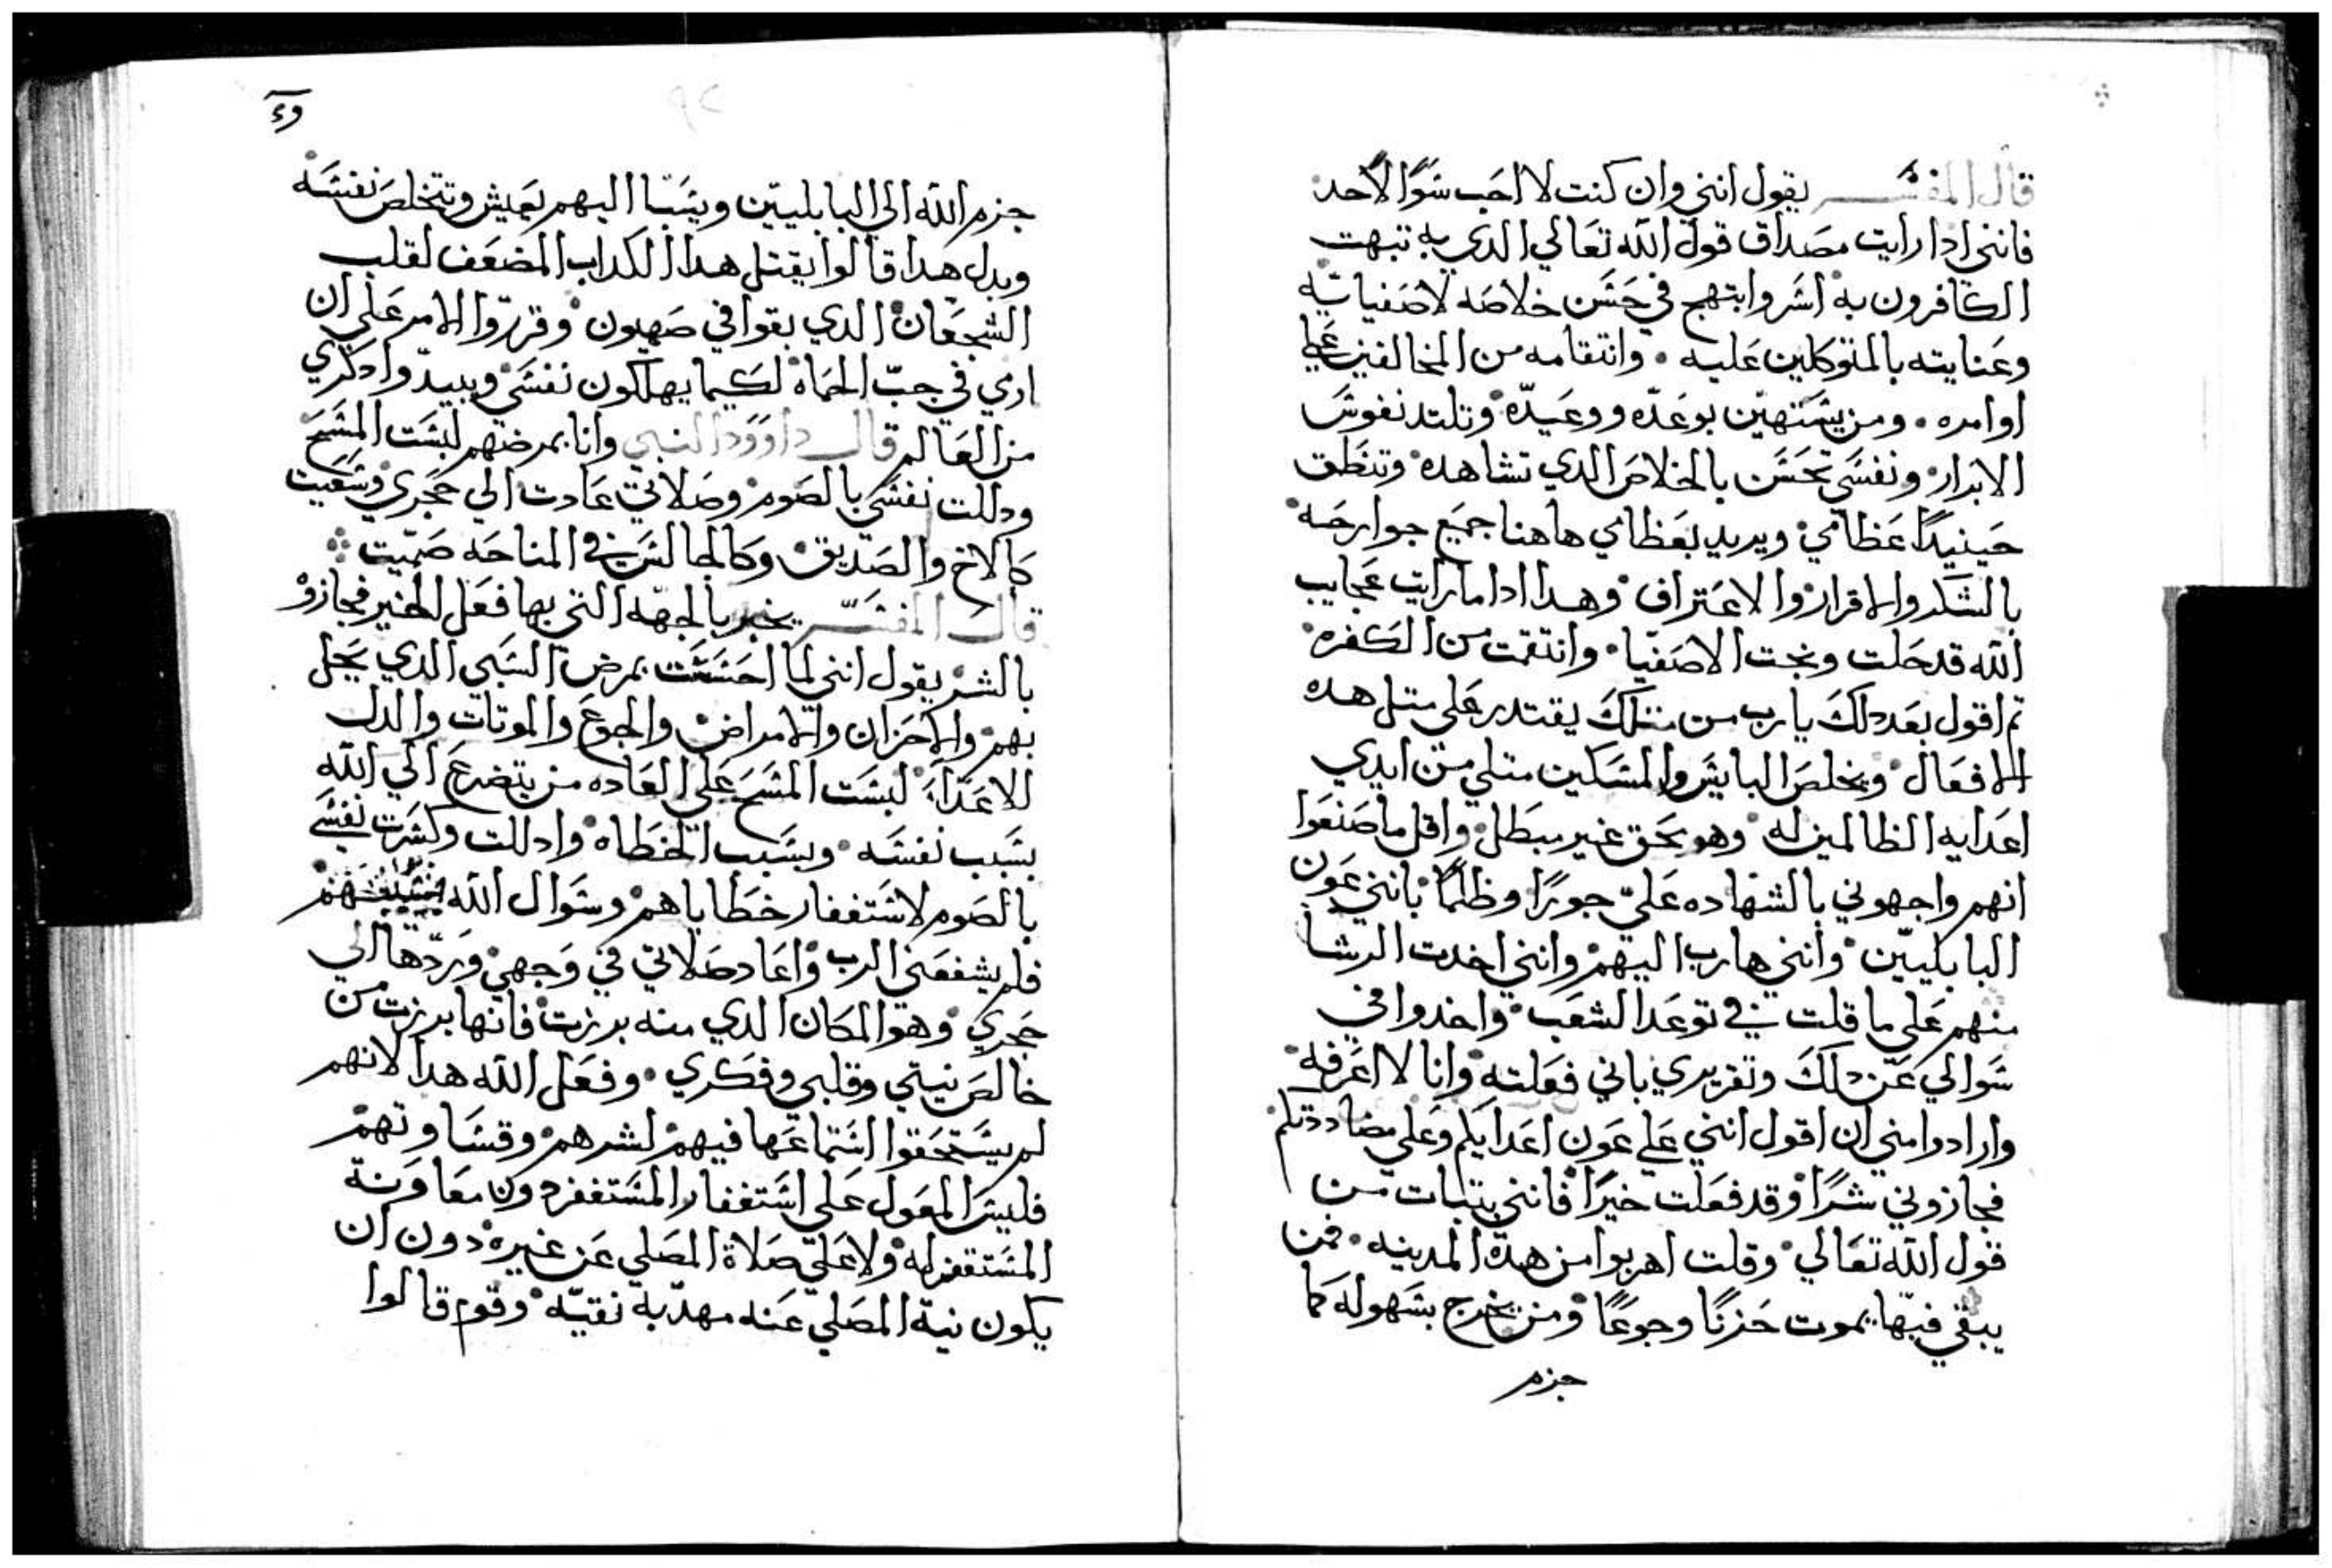 قال المفسر يقول انني وان كنت لا احب سوًا لاحد
فانني ادا رايت مصداق قول الله تعالي الدي به تبهت
الكافرون به اسر وابتهج في حسن خلاصه لاصفيايه
وعنايته بالمتوكلين عليه وانتقامه من المخالفين علي
اوامره ومن يستهين بوعده ووعيده وتلتد نفوس
الابرار ونفسي تحسن بالخلاص الدي تشاهده وتنطق
حينيدًا عظامي ويريد بعظامي هاهنا جميع جوارحه
بالشكر والاقرار والاعتراف وهدا ادا ما رايت عجايب
الله قد حلت ونجت الاصفيا وانتقمت من الكفره
تم اقول بعد دلك يا رب من متلك يقتدر علي متل هده
الافعال ويخلص البايس والمسكين متلي من ايدي
اعدايه الظالمين له وهو بحق غير مبطل واقل ما صنعوا
انهم واجهوني بالشهاده عليّ جورًا وظلمًا بانني عون
البابليين وانني هارب اليهم وانني اخدت الرشا
منهم علي ما قلت في توعد الشعب واخدوا في
سوالي عن دلك وتقريري باني فعلته وانا لا اعرفه
وارادوا مني ان اقول انني علي عون اعدايكم وعلي مضاددتكم
فجازوني شرًا وقد فعلت خيرًا فانني بتبات من
قول الله تعالي وقلت اهربوا من هده المدينه فمن
يبقي فيها يموت حزنًا وجوعًا ومن يخرج بسهوله كما
جزم
جزم الله الي البابليين ويستبا اليهم يعيش وتتخلص نفسه
وبدل هدا قالوا يقتل هدا الكداب المضعف لقلب
الشجعان الدي بقوا في صهيون وقرروا الامر علي ان
ارمي في جبّ الحماه لكيما يهلكون نفسي ويبيدوا دكري
من العالم قال داوود النبي وانا بمرضهم لبست المسح
ودللت نفسي بالصوم وصلاتي عادت الي حجري وسعيت
كالاخ والصديق وكالجالس في المناحه صميت
قال المفسر يخبر بالجهه التي بها فعل الخير فجازوْ
بالشر يقول انني لما احسست بمرض السبي الدي يحل
بهم والاحزان والامراض والجوع والموتات والدل
للاعداء لبست المسح علي العاده من يتضرع الي الله
بسبب نفسه وبسبب الخطاه وادللت وكسرت نفسي
بالصوم لاستغفار خطاياهم وسوال الله
فلم يشفعني الرب واعاد صلاتي في وجهي وردها الي
حجري وهو المكان الدي منه برزت فانها برزت من
خالص نيتي وقلبي وفكري وفعل الله هدا لانهم
لم يستحقوا استماعها فيهم لشرهم وقساوتهم
فليس المعول علي استغفار المستغفر دون معاونة
المستغفر له ولا علي صلاة المصلي عن غيره دون ان
يكون نية المصلي عنه مهدبه نقيه وقوم قالوا